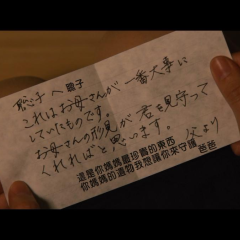 聡子へ 聰子
これはお母さんが一番大事に
していたものです。
お母さんの形見が君を見守って
くれればと思います。 父より
這是你媽媽最珍貴的東西
你媽媽的遺物我想讓你來守護 爸爸